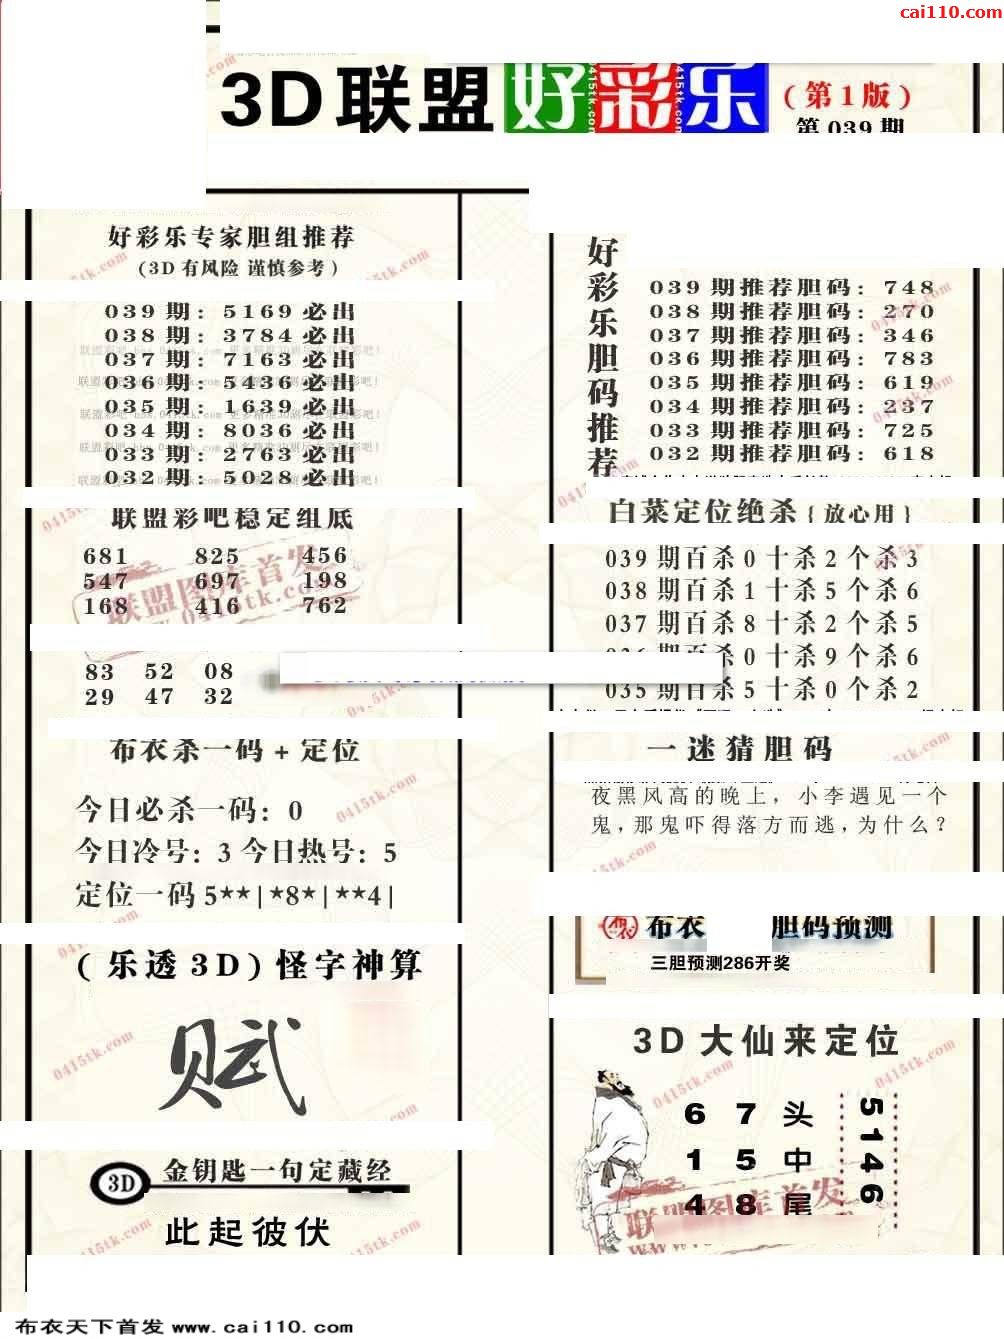 cai110.com
3D联盟好彩乐
(第1版)
第039期
好彩乐专家胆组推荐
(3D有风险 谨慎参考)
039期：5169必出
038期：3784必出
037期：7163必出
036期：5436必出
035期：1639必出
034期：8036必出
033期：2763必出
032期：5028必出
联盟彩吧稳定组底
681 825 456
547 697 198
168 416 762
83 52 08
29 47 32
布衣杀一码+定位
今日必杀一码：0
今日冷号：3 今日热号：5
定位一码5**|*8*|**4|
(乐透3D)怪字神算
赋
3D 金钥匙一句定藏经
此起彼伏
好彩乐胆码推荐
039期推荐胆码：748
038期推荐胆码：270
037期推荐胆码：346
036期推荐胆码：783
035期推荐胆码：619
034期推荐胆码：237
033期推荐胆码：725
032期推荐胆码：618
白菜定位绝杀{放心用}
039期百杀0十杀2个杀3
038期百杀1十杀5个杀6
037期百杀8十杀2个杀5
036期百杀0十杀9个杀6
035期百杀5十杀0个杀2
一迷猜胆码
夜黑风高的晚上，小李遇见一个
鬼，那鬼吓得落方而逃，为什么？
布衣 胆码预测
三胆预测286开奖
3D大仙来定位
6 7 头
1 5 中
4 8 尾
5146
联盟图库首发
0415tk.com
布衣天下首发 www.cai110.com